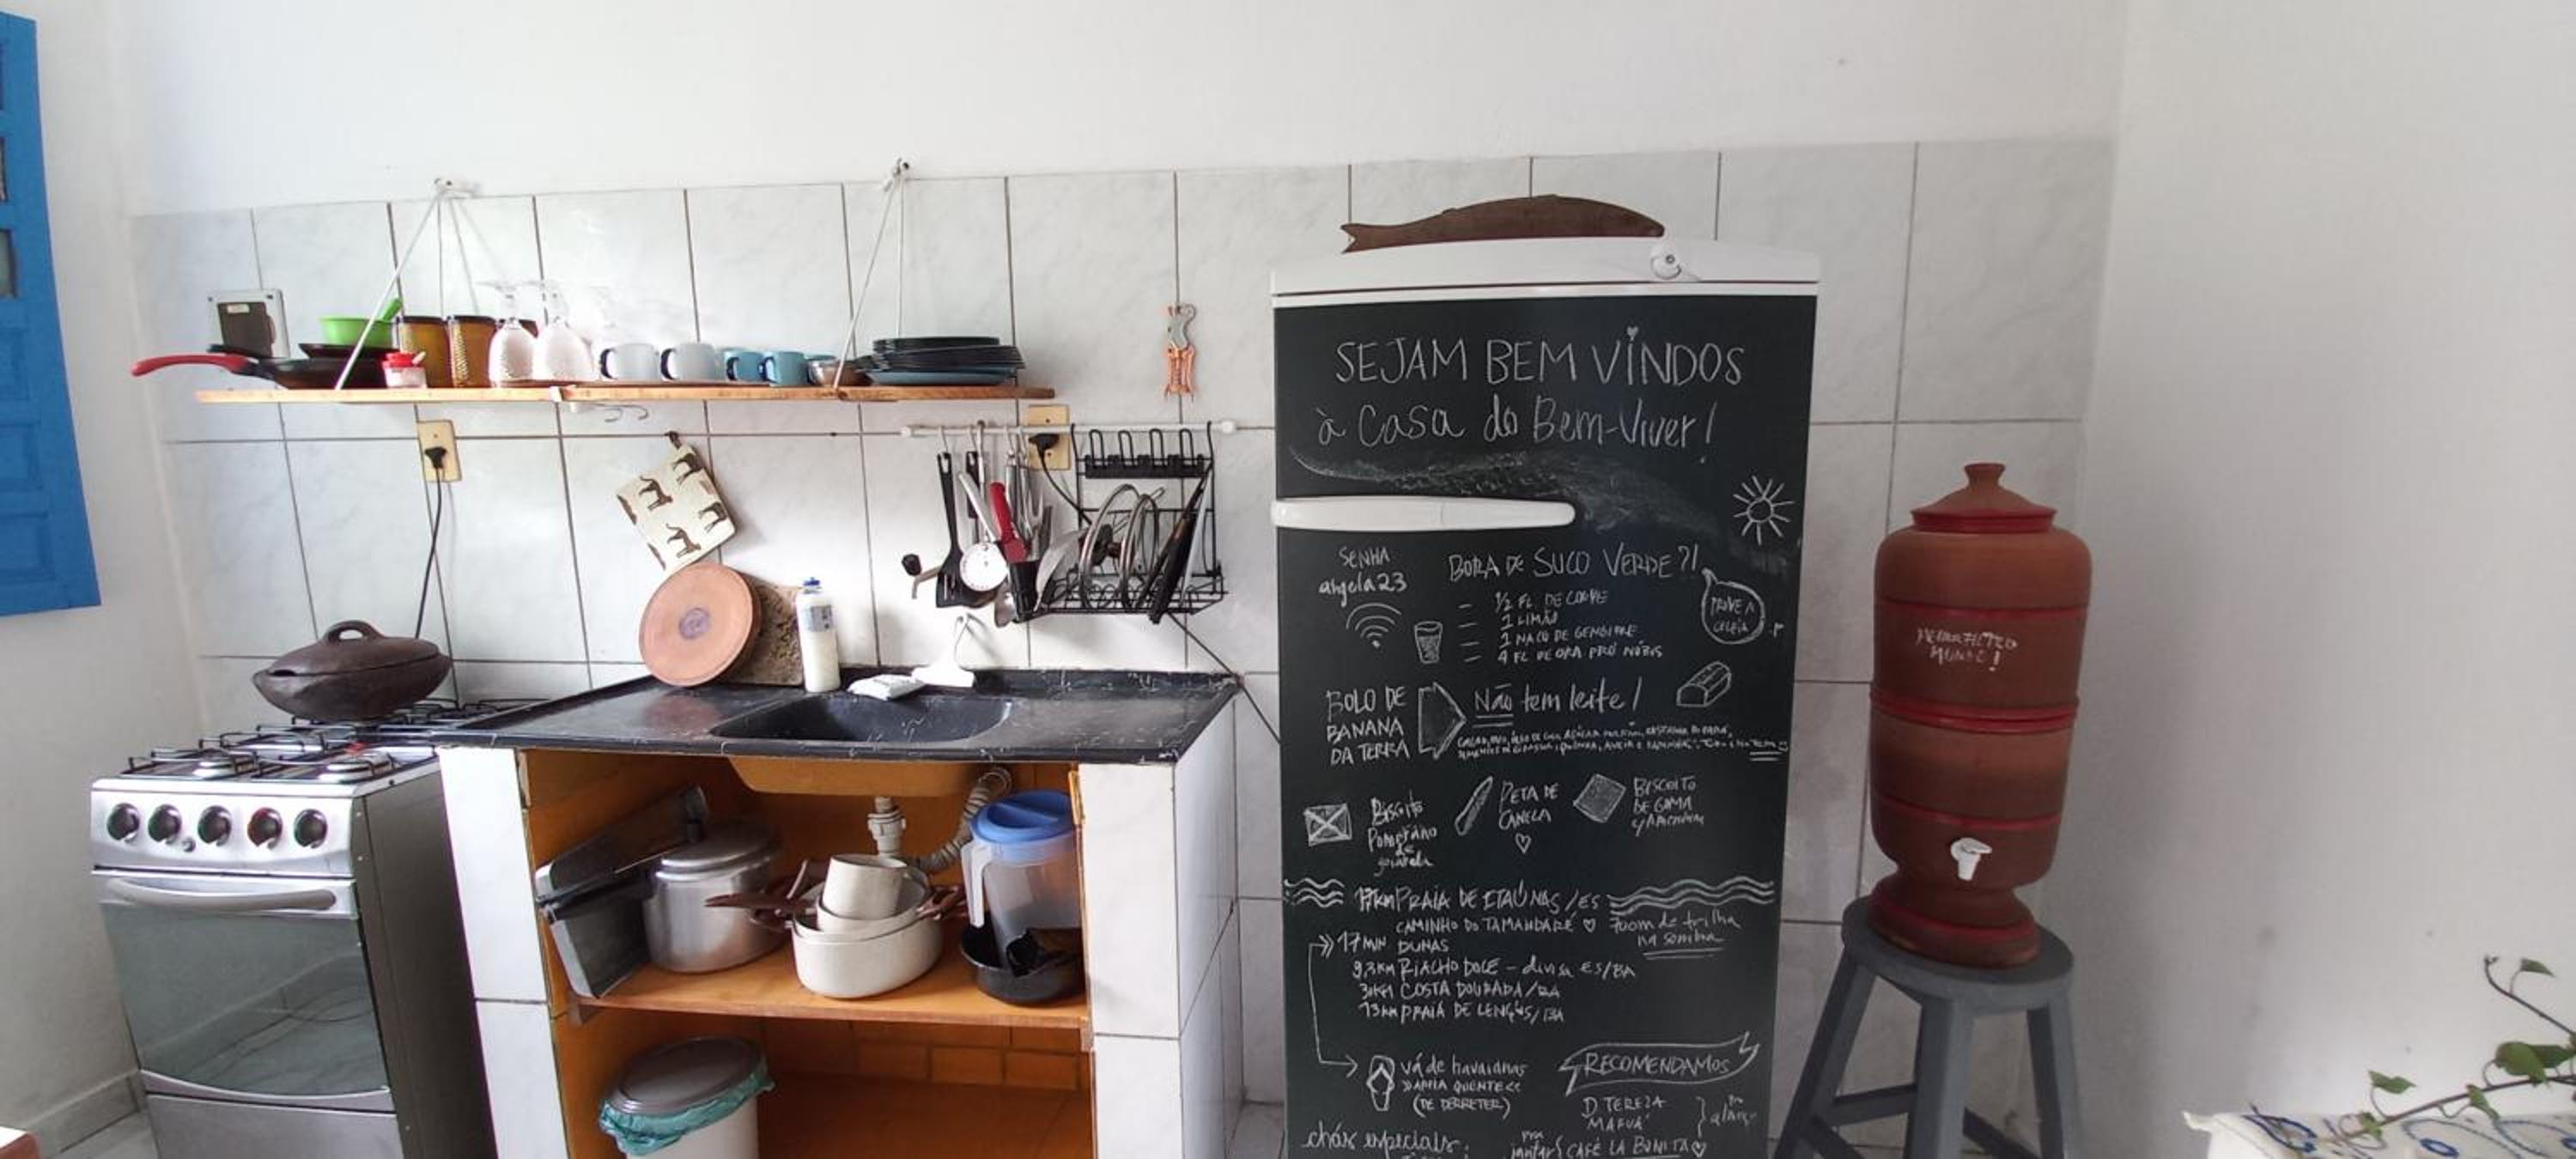 SEJAM BEM VINDOS
à Casa do Bem-Viver!
SENHA
angela23
BORA DE SUCO VERDE?!
1/2 FL. DE COUVE
1 LIMÃO
1 NACO DE GENGIBRE
4 FL DE ORA PRO NÓBIS
PROVE A
GELEIA
BOLO DE
BANANA
DA TERRA
Não tem leite!
Biscoito
Pomerano
de
goiabada
PETA DE
CANELA
BISCOITO
DE GOMA
17KM PRAIA DE ITAÚNAS/ES
CAMINHO DO TAMANDARÉ
700m de trilha
na sombra
17 MIN DUNAS
9,3KM RIACHO DOCE - divisa ES/BA
COSTA DOURADA/BA
13KM PRAIA DE LENÇÓIS/BA
vá de havaianas
>>AREIA QUENTE<<
(DE DERRETER)
RECOMENDAMOS
D. TEREZA
MAFUÁ
pra
almoço
chás especiais:
pra
jantar
CAFÉ LA BONITA